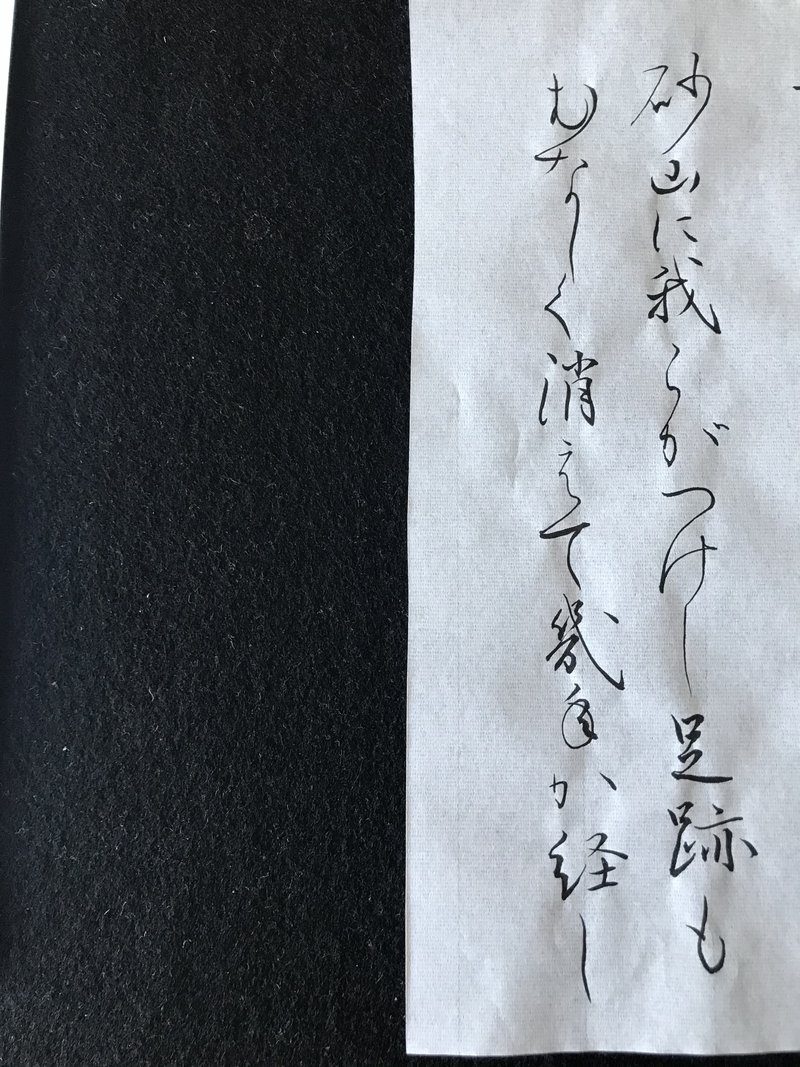 砂山に我らがつけし足跡も
むなしく消えて幾年か経し